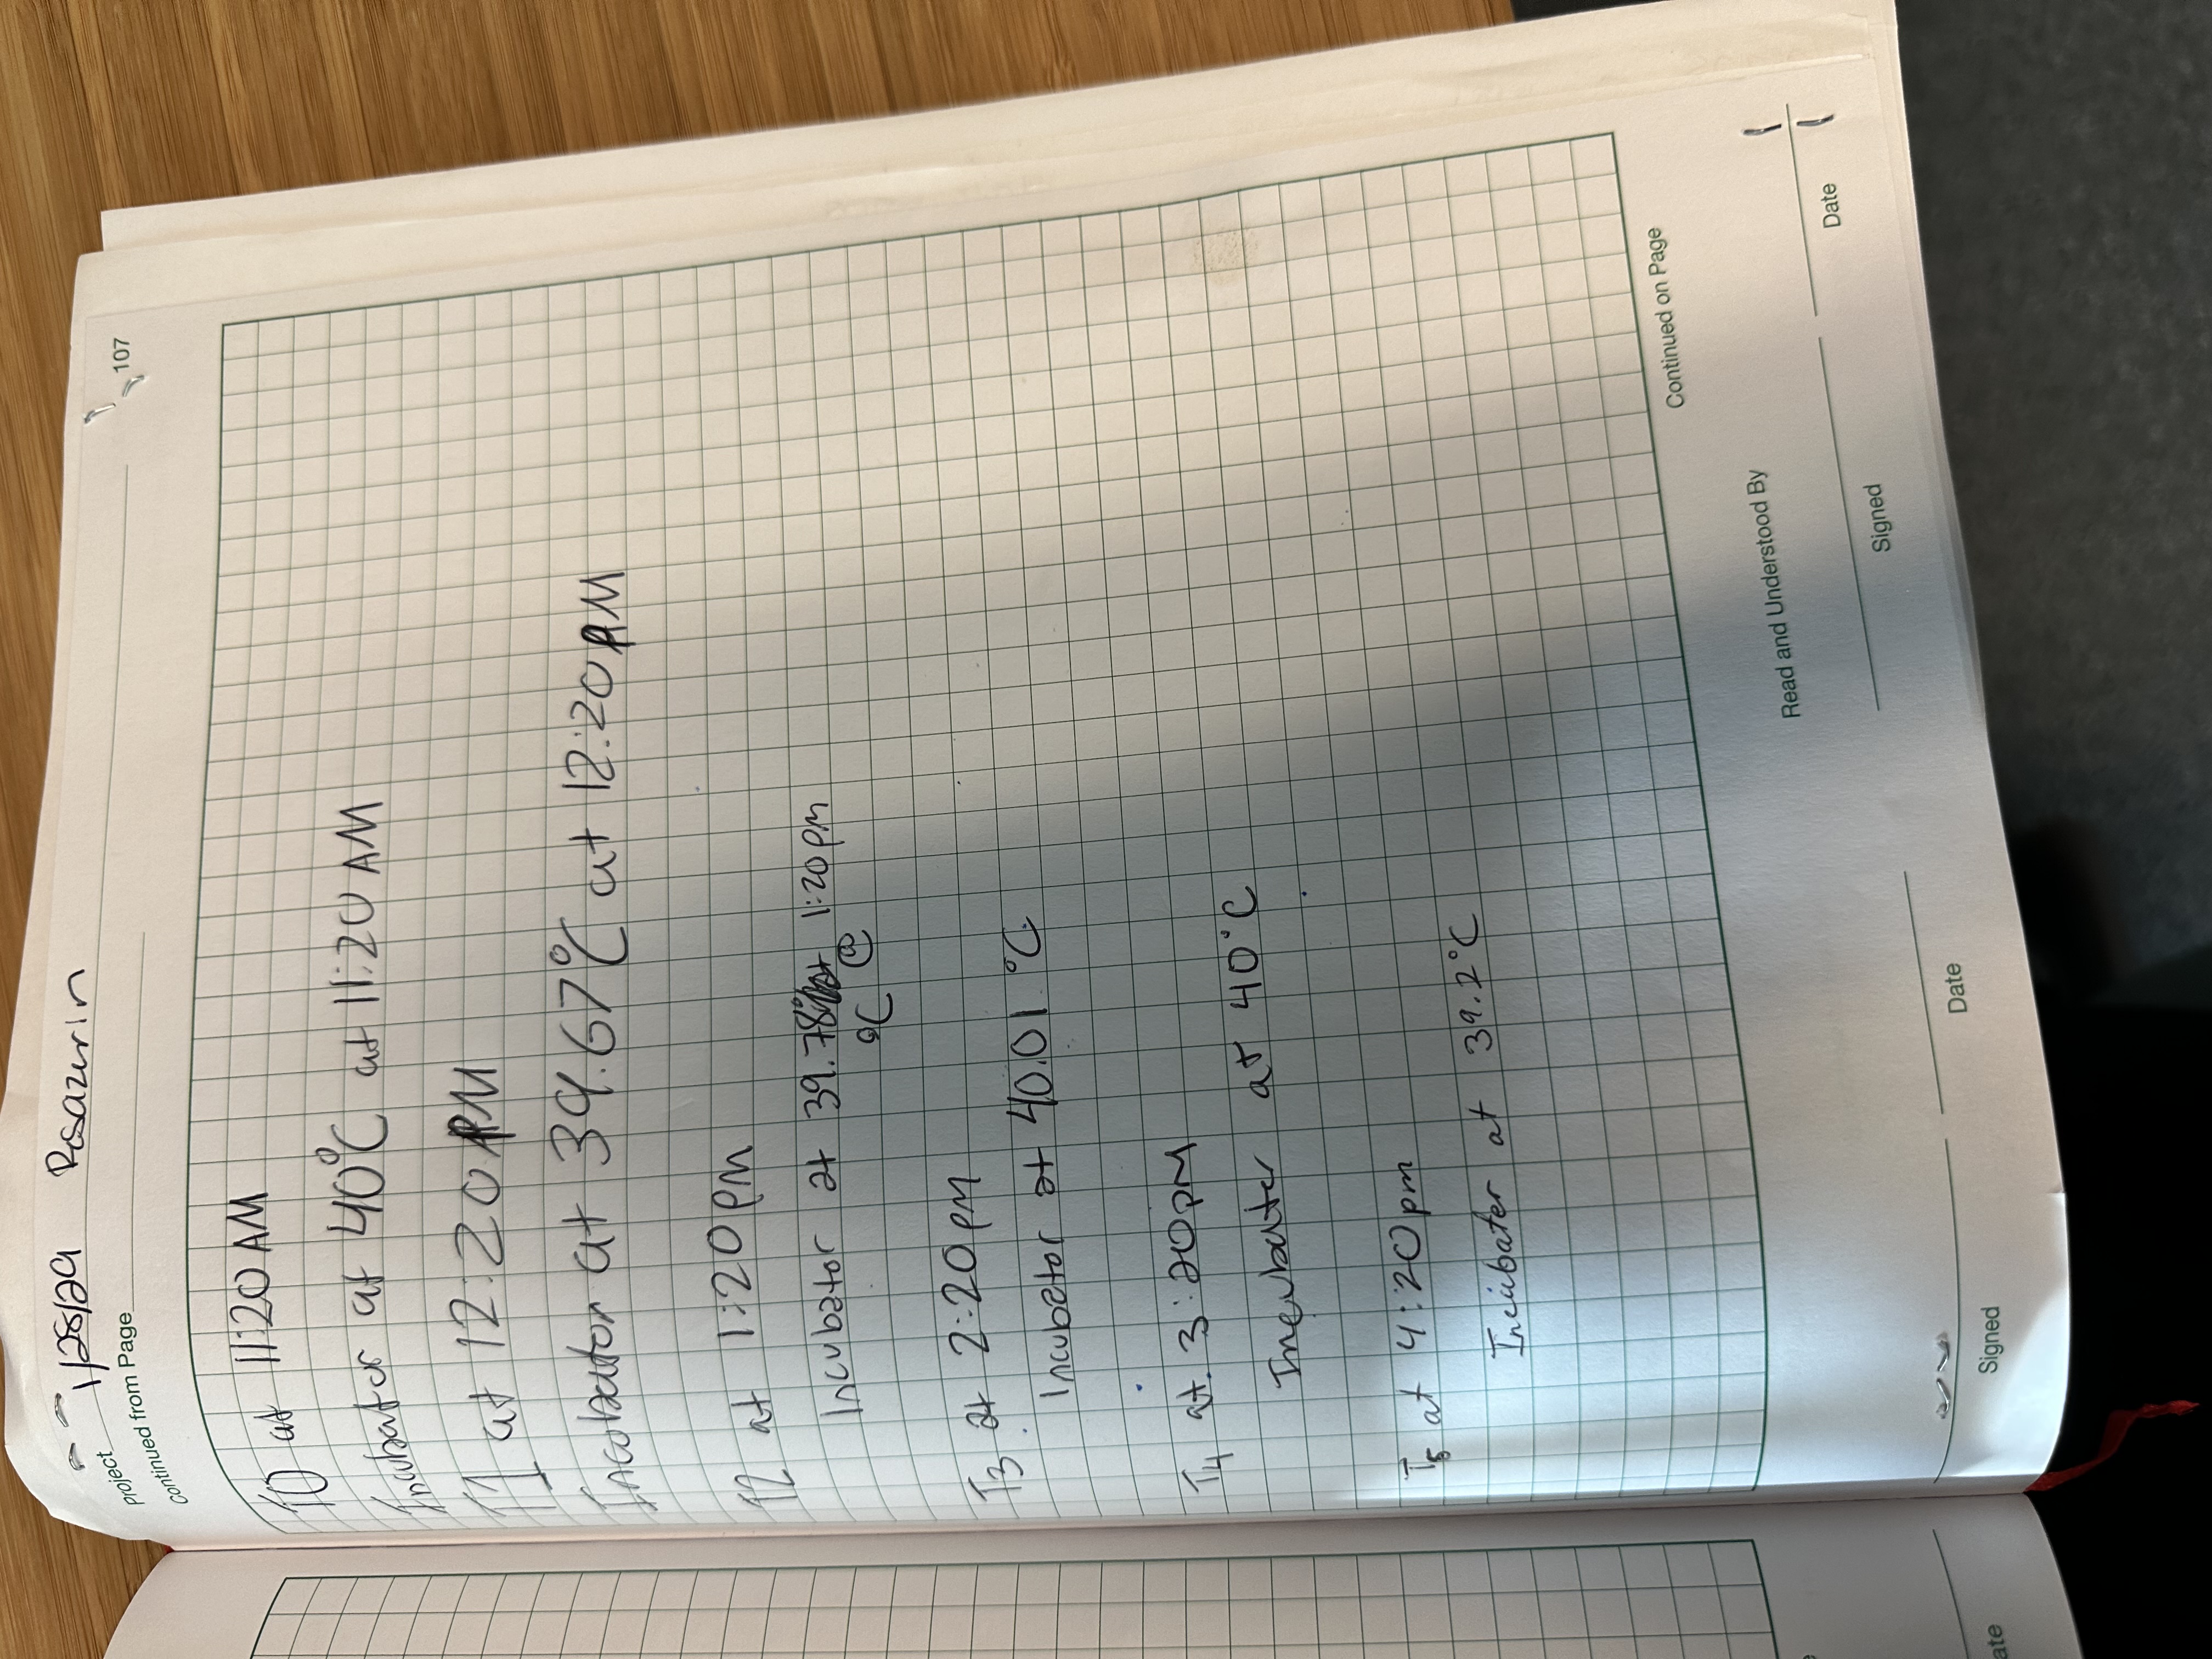 Project 1/28/29 Resazurin
107
Continued from Page
T0 at 11:20 AM
Incubator at 40°C at 11:20 AM
T1 at 12:20 PM
Incobator at 39.67°C at 12:20 PM
T2 at 1:20 pm
Incubator at 39.78 1:20 pm
°C @
T3 at 2:20 pm
Incubator at 40.01 °C
T4 at 3:20pm
Incubater at 40°C
T5 at 4:20pm
Incubater at 39.2°C
Continued on Page
Read and Understood By
Signed
Date
Signed
Date
ate